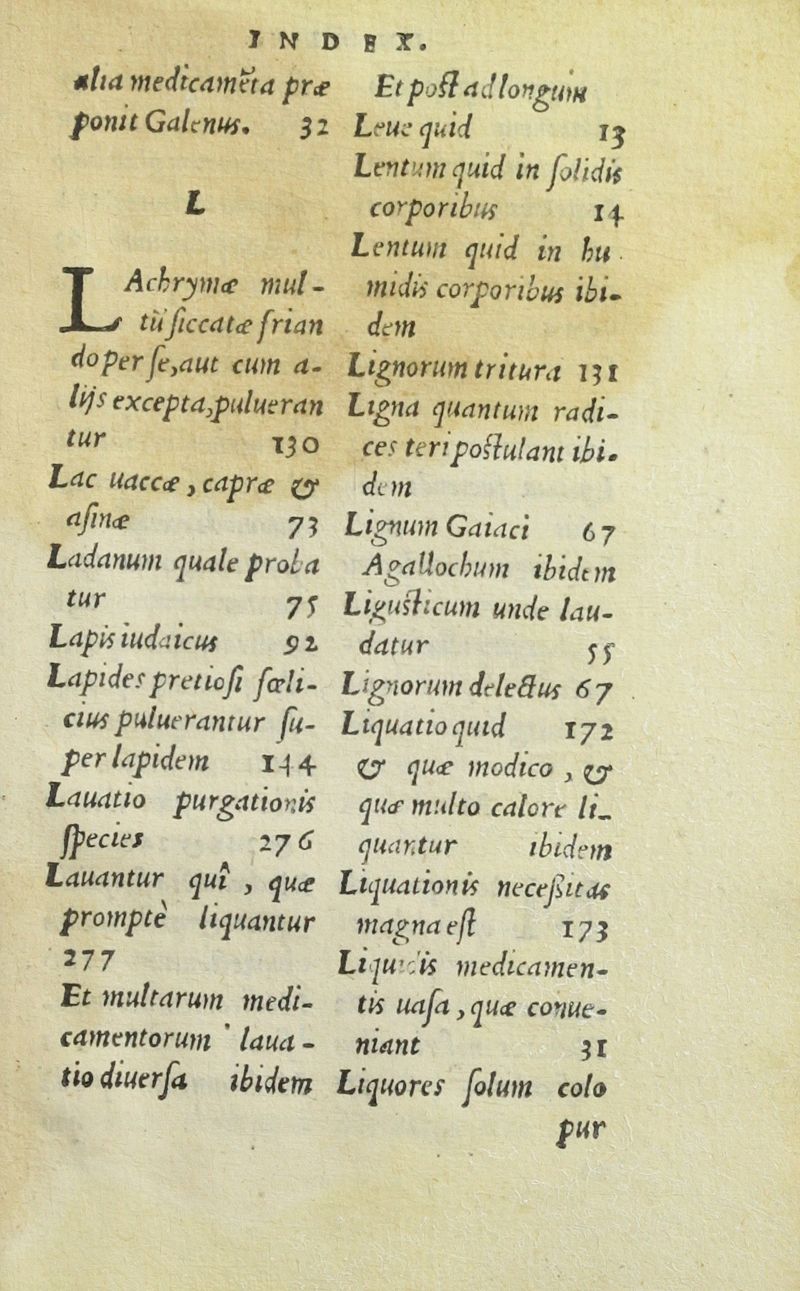 INDEX.
alia medicamẽta præ
ponit Galenus. 32
L
LAchrymæ mul-
tũ siccatæ frian
do per se, aut cum a-
lijs excepta, pulueran
tur 130
Lac uaccæ, capræ &
asinæ 73
Ladanum quale proba
tur 75
Lapis iudaicus 92
Lapides pretiosi fœli-
cius puluerantur su-
per lapidem 144
Lauatio purgationis
species 276
Lauantur quî, quæ
promptè liquantur
277
Et multarum medi-
camentorum laua-
tio diuersa ibidem
Et post ad longum
Leue quid 13
Lentum quid in solidis
corporibus 14
Lentum quid in hu
midis corporibus ibi-
dem
Lignorum tritura 131
Ligna quantum radi-
ces teri postulant ibi.
dem
Lignum Gaiaci 67
Agallochum ibidem
Ligusticum unde lau-
datur 55
Lignorum delectus 67
Liquatio quid 172
& quæ modico, &
quæ multo calore li-
quantur ibidem
Liquationis necessitas
magna est 173
Liquidis medicamen-
tis uasa, quæ conue-
niant 31
Liquores solum colo
pur